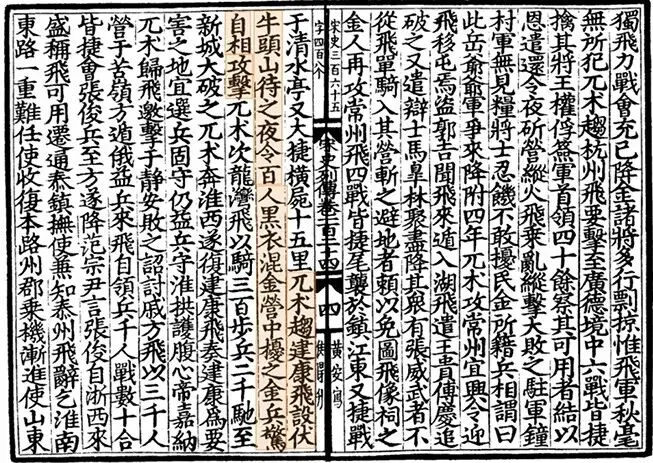 獨飛力戰會充已降金諸將多行剽掠惟飛軍秋毫
無所犯兀术趨杭州飛要擊至廣德境中六戰皆捷
擒其將王權俘簽軍首領四十餘察其可用者結以
恩遣還令夜斫營縱火飛乘亂縱擊大敗之駐軍鐘
村軍無見糧將士忍饑不敢擾民金所籍兵相謂曰
此岳爺爺軍爭來降附四年兀术攻常州宜興令迎
飛移屯焉盜郭吉聞飛來遁入湖飛遣王貴傅慶追
破之又遣辯士馬臯林聚盡降其衆有張威武者不
從飛單騎入其營斬之避地者賴以免圖飛像祠之
金人再攻常州飛四戰皆捷尾襲於鎮江東又捷戰
宋史三百六十五
字四百个
宋史列傳卷一百二十四
四
黃安寫
于清水亭又大捷橫屍十五里兀术趨建康飛設伏
牛頭山待之夜令百人黑衣混金營中擾之金兵驚
自相攻擊兀术次龍灣飛以騎三百步兵二千馳至
新城大破之兀术奔淮西遂復建康飛奏建康為要
害之地宜選兵固守仍益兵守淮拱護腹心帝嘉納
兀术歸飛邀擊于靜安敗之詔討戚方飛以三千人
營于苦嶺方遁俄益兵來飛自領兵千人戰數十合
皆捷會張俊兵至方遂降范宗尹言張俊自浙西來
盛稱飛可用遷通泰鎮撫使兼知泰州飛辭乞淮南
東路一重難任使收復本路州郡乘機漸進使山東